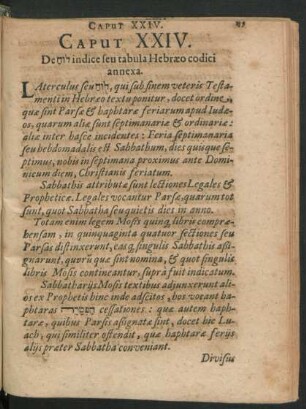 CAPUT XXIV.
CAPUT XXIV.
De לוח indice seu tabula Hebræo codici
annexa.
LAterculus seu לוח, qui sub finem veteris Testa-
menti in Hebræo textu ponitur, docet ordine,
quæ sint Parsæ & haphtaræ feriarum apud Iudæ-
os, quarum aliæ sunt septimanariæ & ordinariæ:
aliæ inter hasce incidentes: Feria septimanaria
seu hebdomadalis est Sabbathum, dies quique se-
ptimus, nobis in septimana proximus ante Domi-
nicum diem, Christianis feriatum.
Sabbathis attributæ sunt lectiones Legales &
Propheticæ. Legales vocantur Parsæ, quarum tot
sunt, quot Sabbatha sequuntur dies in anno.
Totam enim legem Mosis quinq; libris compræ-
hensam, in quinquaginta quatuor sectiones seu
Parsas distinxerunt, easq; singulis Sabbathis assi-
gnarunt, quæ sint nomina, & quot singulis
libris Mosis contineantur, suprà fuit indicatum.
Sabbatharijs Mosis textibus adjunxerunt ali-
os ex Prophetis hinc inde adscitos, hos vocant ha-
phtaras cessationes: quæ autem haph-
taræ, quibus Parsis assignatæ sint, docet hic Lu-
ach, qui similiter ostendit, quæ haphtaræ ferijs
alijs præter Sabbatha conveniant.
Divisio